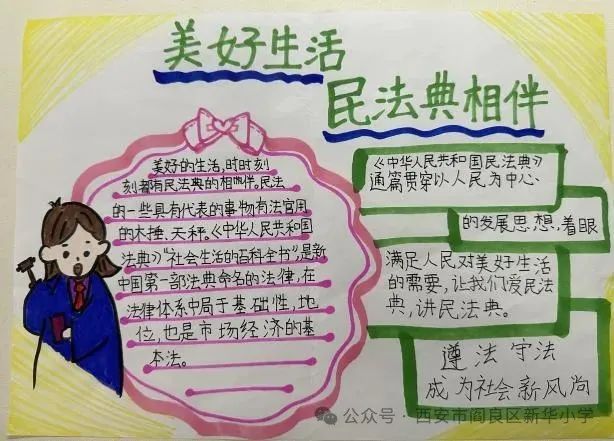 美好生活
民法典相伴
美好的生活,时时刻
刻都有民法典的相伴。民法
的一些具有代表的事物有法官用
的木捶、天秤。《中华人民共和国
法典》“社会生活的百科全书”,是新
中国第一部法典命名的法律,在
法律体系中局于基础性,地
位,也是市场经济的基
本法。
《中华人民共和国民法典》
通篇贯穿以人民为中心
的发展思,想,着眼
满足人民对美好生活
的需要,让我们爱民法
典,讲民法典。
遵法守法
成为社会新风尚
公众号·西安市阎良区新华小学